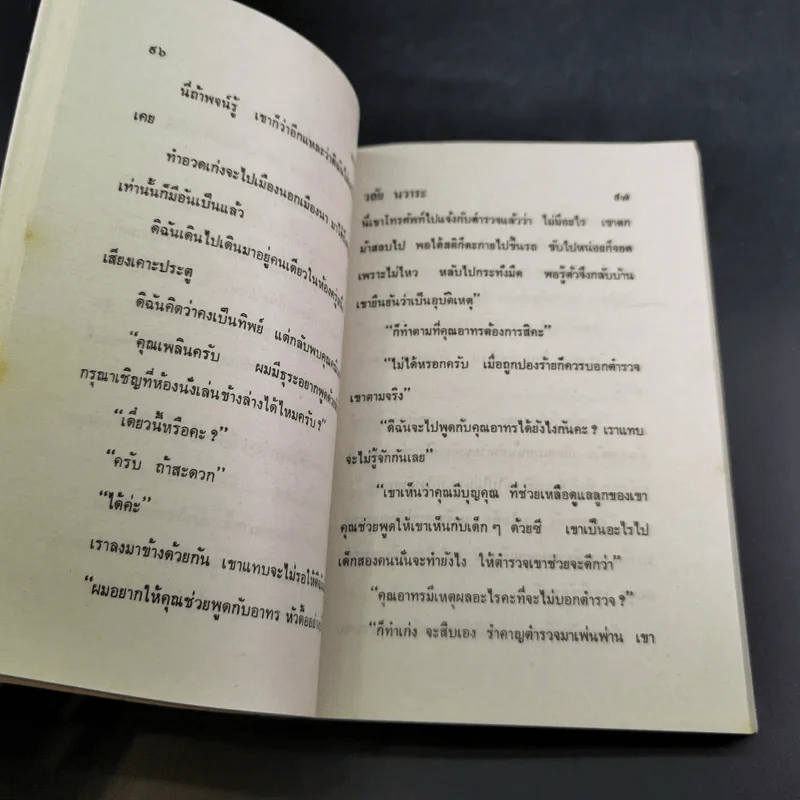 ๙๖
นี่ถ้าพจน์รู้ เขาก็ว่าอีกแหละว่าดิฉัน
เคย
ทำอวดเก่งจะไปเมืองนอกเมืองนา มาได้
เท่านั้นก็มีอันเป็นแล้ว
ดิฉันเดินไปเดินมาอยู่คนเดียวในห้องครู่
เสียงเคาะประตู
ดิฉันคิดว่าคงเป็นทิพย์ แต่กลับพบคุณ
“คุณเพลินครับ ผมมีธุระอยากพูดด้วย
กรุณาเชิญที่ห้องนั่งเล่นข้างล่างได้ไหมครับ?”
“เดี๋ยวนี้หรือคะ?”
“ครับ ถ้าสะดวก”
“ได้ค่ะ”
เราลงมาข้างด้วยกัน เขาแทบจะไม่รอให้
“ผมอยากให้คุณช่วยพูดกับอาทร หัวดื้ออย่าง
วลัย นวาระ ๙๗
นี่เขาโทรศัพท์ไปแจ้งกับตำรวจแล้วว่า ไม่มีอะไร เขาตก
ม้าสลบไป พอได้สติก็ตะกายไปขึ้นรถ ขับไปหน่อยก็จอด
เพราะไม่ไหว หลับไปกระทั่งมืด พอรู้ตัวจึงกลับบ้าน
เขายืนยันว่าเป็นอุบัติเหตุ”
“ก็ทำตามที่คุณอาทรต้องการสิคะ”
“ไม่ได้หรอกครับ เมื่อถูกปองร้ายก็ควรบอกตำรวจ
เขาตามจริง”
“ดิฉันจะไปพูดกับคุณอาทรได้ยังไงกันคะ? เราแทบ
จะไม่รู้จักกันเลย”
“เขาเห็นว่าคุณมีบุญคุณ ที่ช่วยเหลือดูแลลูกของเขา
คุณช่วยพูดให้เขาเห็นกับเด็ก ๆ ด้วยซี เขาเป็นอะไรไป
เด็กสองคนนั่นจะทำยังไง ให้ตำรวจเขาช่วยจะดีกว่า”
“คุณอาทรมีเหตุผลอะไรคะที่จะไม่บอกตำรวจ?”
“ก็ทำเก่ง จะสืบเอง รำคาญตำรวจมาเพ่นพ่าน เขา